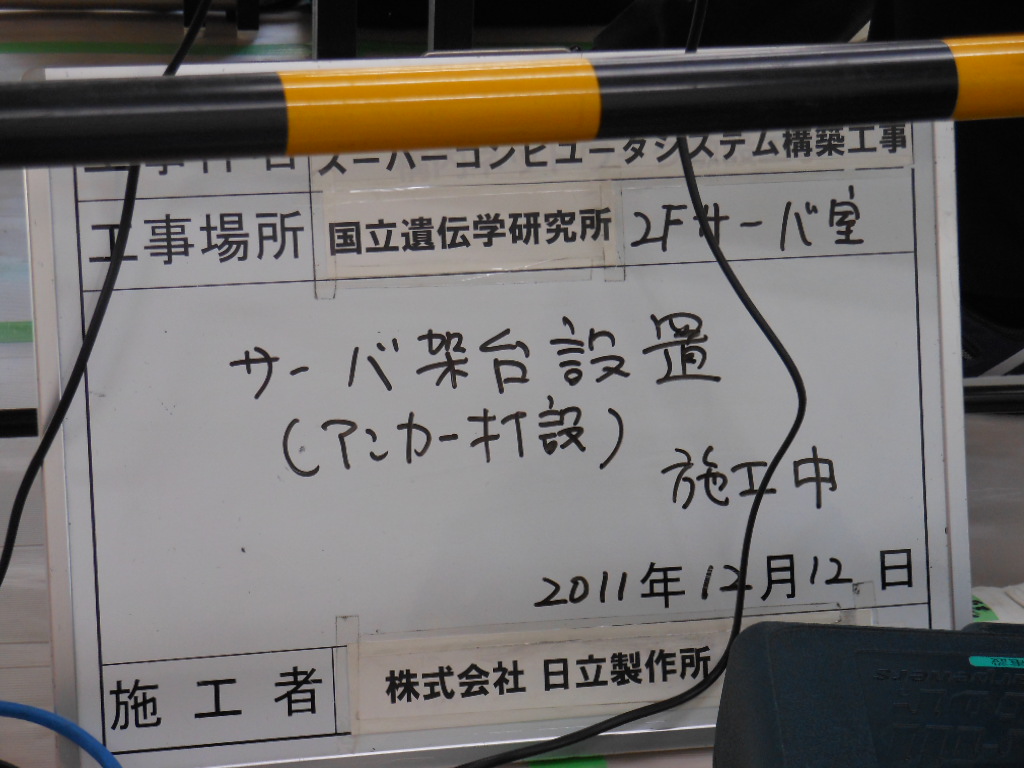 工事件名 スーパーコンピュータシステム構築工事
工事場所 国立遺伝学研究所 2Fサーバ室
サーバ架台設置
(アンカー打設)
施工中
2011年12月12日
施工者 株式会社 日立製作所